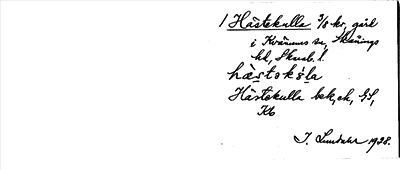 1 Hästekulla 3/8 kr, gård
i Kvänums sn, Skånings
hd, Skarab. l.
hästoku̇la
Hästekulla bek,ek, GS,
Kb
I. Lundahl 1928.